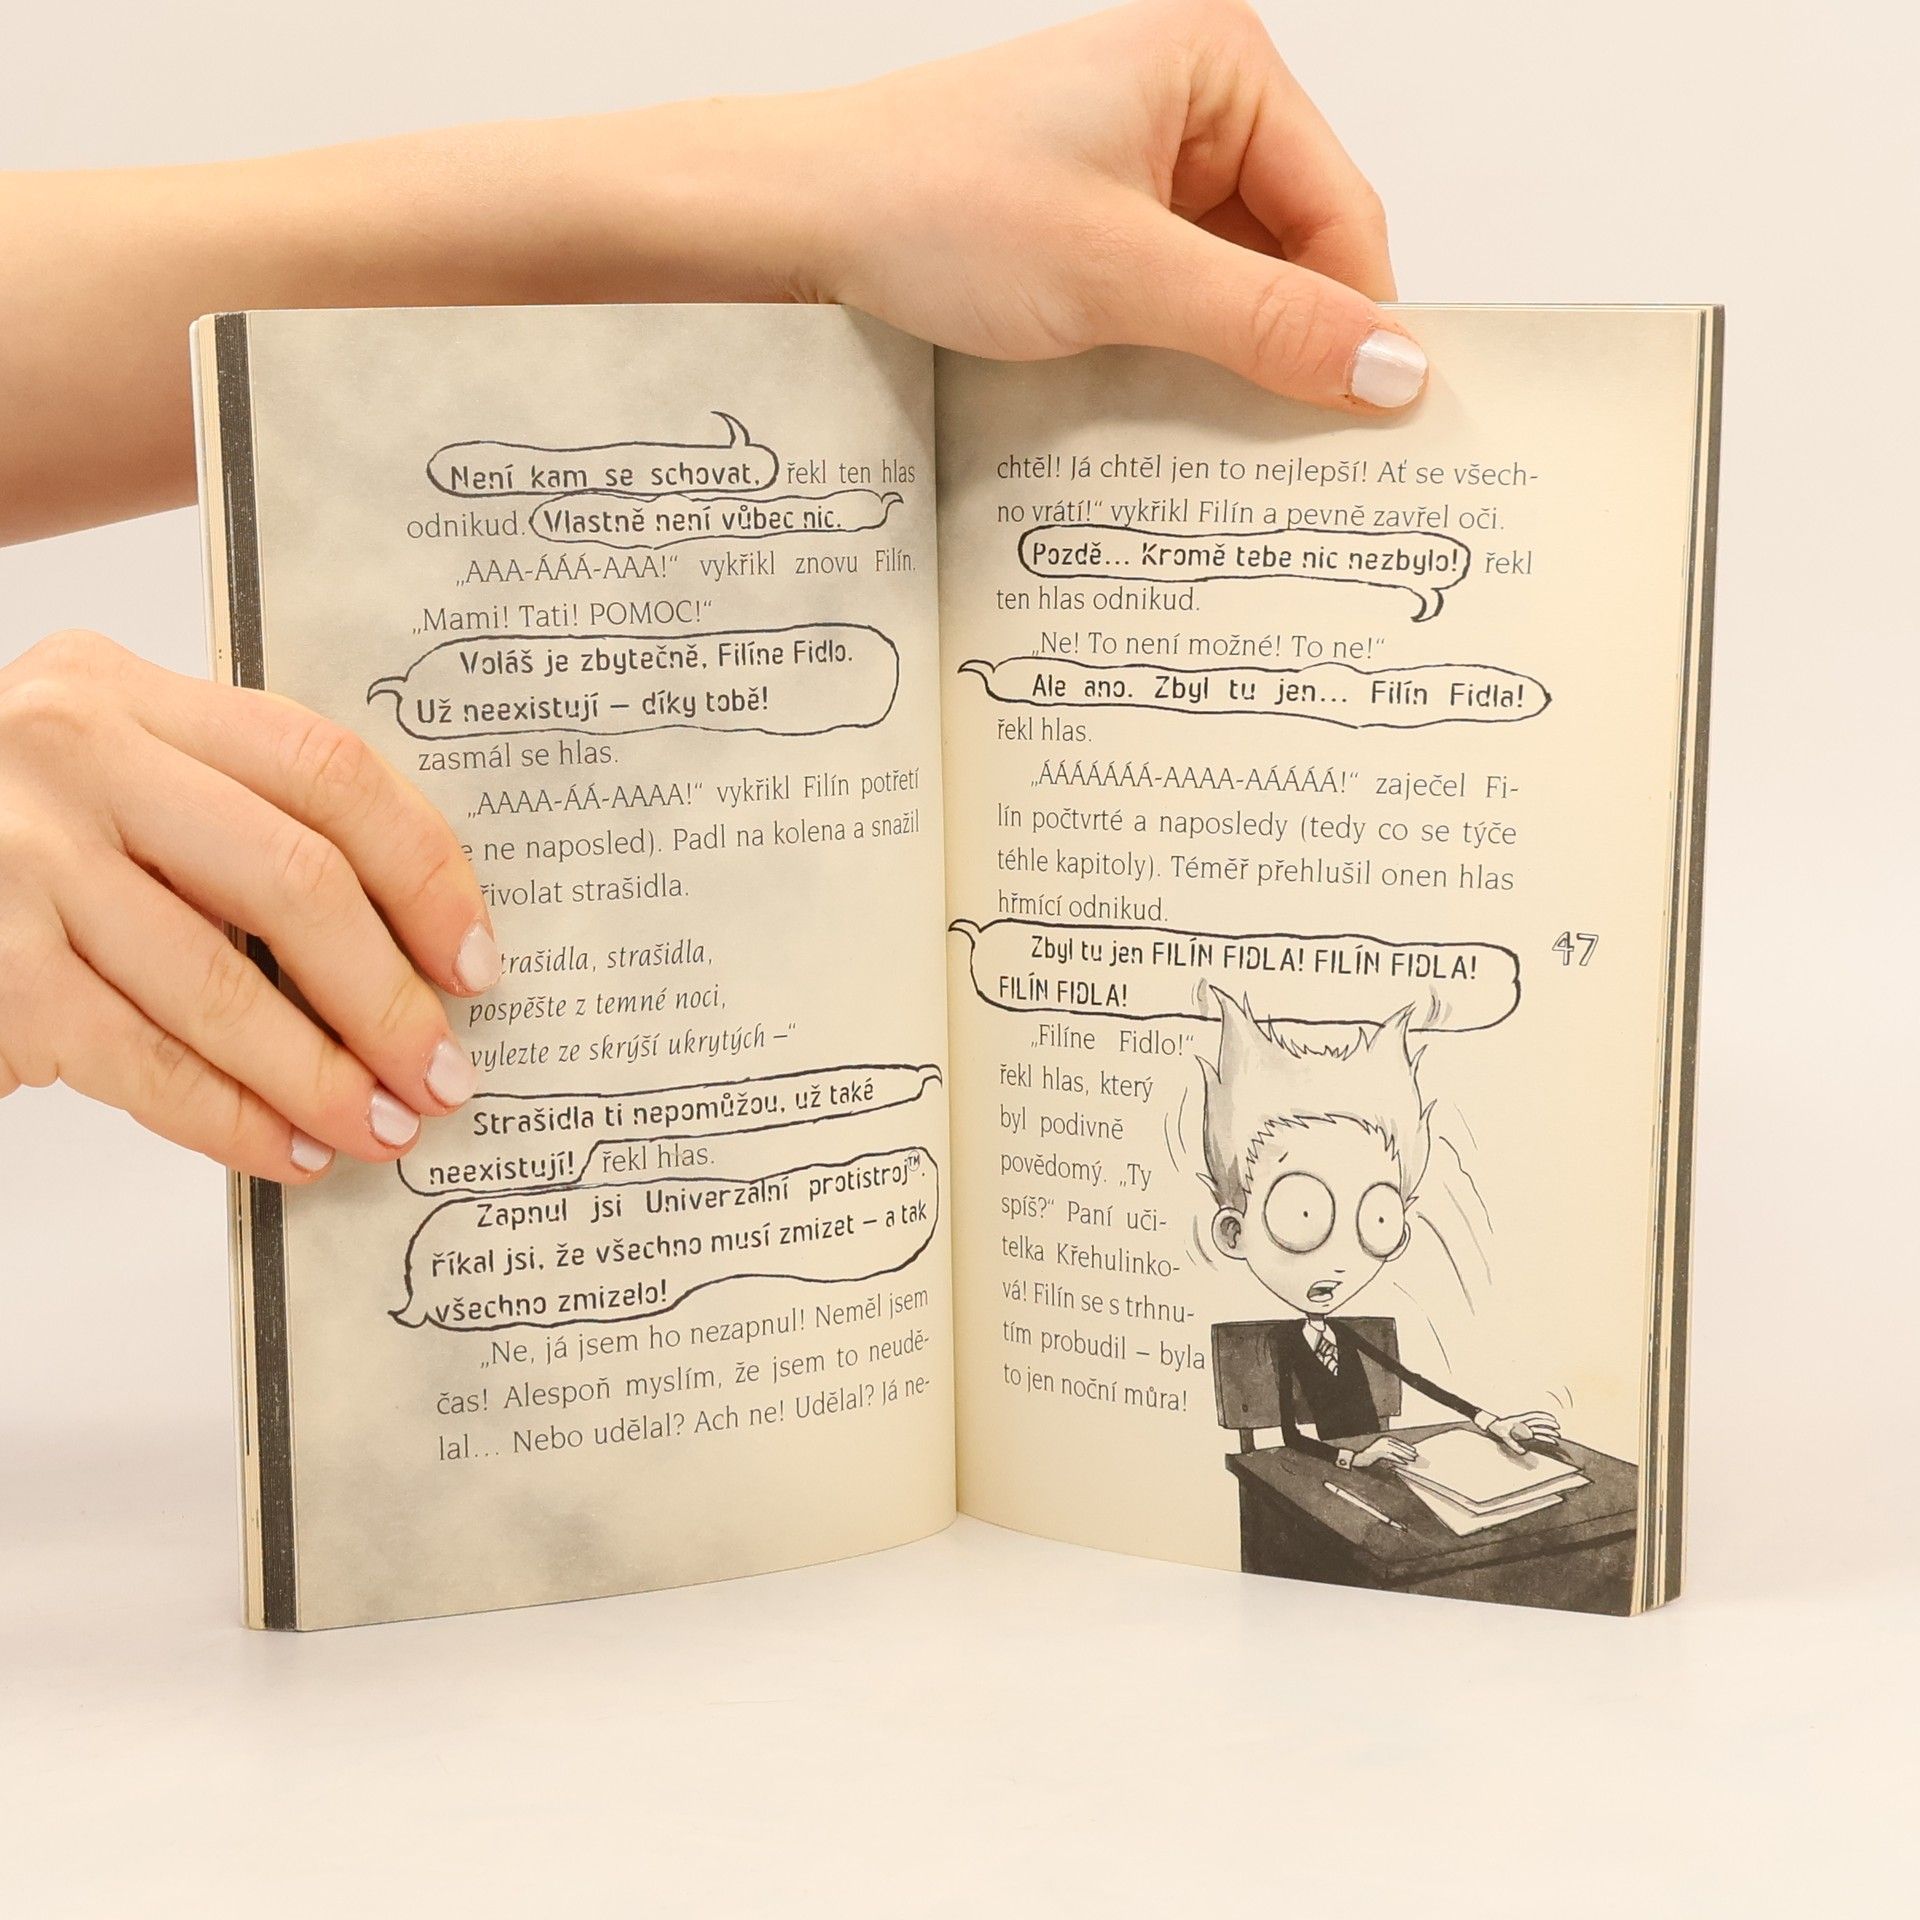 Není kam se schovat, řekl ten hlas
odnikud. Vlastně není vůbec nic.
„AAA-ÁÁÁ-AAA!“ vykřikl znovu Filín.
„Mami! Tati! POMOC!“
Voláš je zbytečně, Filíne Fidlo.
Už neexistují – díky tobě!
zasmál se hlas.
„AAAA-ÁÁ-AAAA!“ vykřikl Filín potřetí
ne naposled). Padl na kolena a snažil
řivolat strašidla.
trašidla, strašidla,
pospěšte z temné noci,
vylezte ze skrýší ukrytých –“
Strašidla ti nepomůžou, už také
neexistují! řekl hlas.
Zapnul jsi Univerzální protistroj™.
říkal jsi, že všechno musí zmizet – a tak
všechno zmizelo!
„Ne, já jsem ho nezapnul! Neměl jsem
čas! Alespoň myslím, že jsem to neudě-
lal... Nebo udělal? Ach ne! Udělal? Já ne-
chtěl! Já chtěl jen to nejlepší! Ať se všech-
no vrátí!“ vykřikl Filín a pevně zavřel oči.
Pozdě... Kromě tebe nic nezbylo! řekl
ten hlas odnikud.
„Ne! To není možné! To ne!“
Ale ano. Zbyl tu jen... Filín Fidla!
řekl hlas.
„ÁÁÁÁÁÁÁ-AAAA-AÁÁÁÁ!“ zaječel Fi-
lín počtvrté a naposledy (tedy co se týče
téhle kapitoly). Téměř přehlušil onen hlas
hřmící odnikud.
Zbyl tu jen FILÍN FIDLA! FILÍN FIDLA!
FILÍN FIDLA!
47
„Filíne Fidlo!“
řekl hlas, který
byl podivně
povědomý. „Ty
spíš?“ Paní uči-
telka Křehulinko-
vá! Filín se s trhnu-
tím probudil – byla
to jen noční můra!